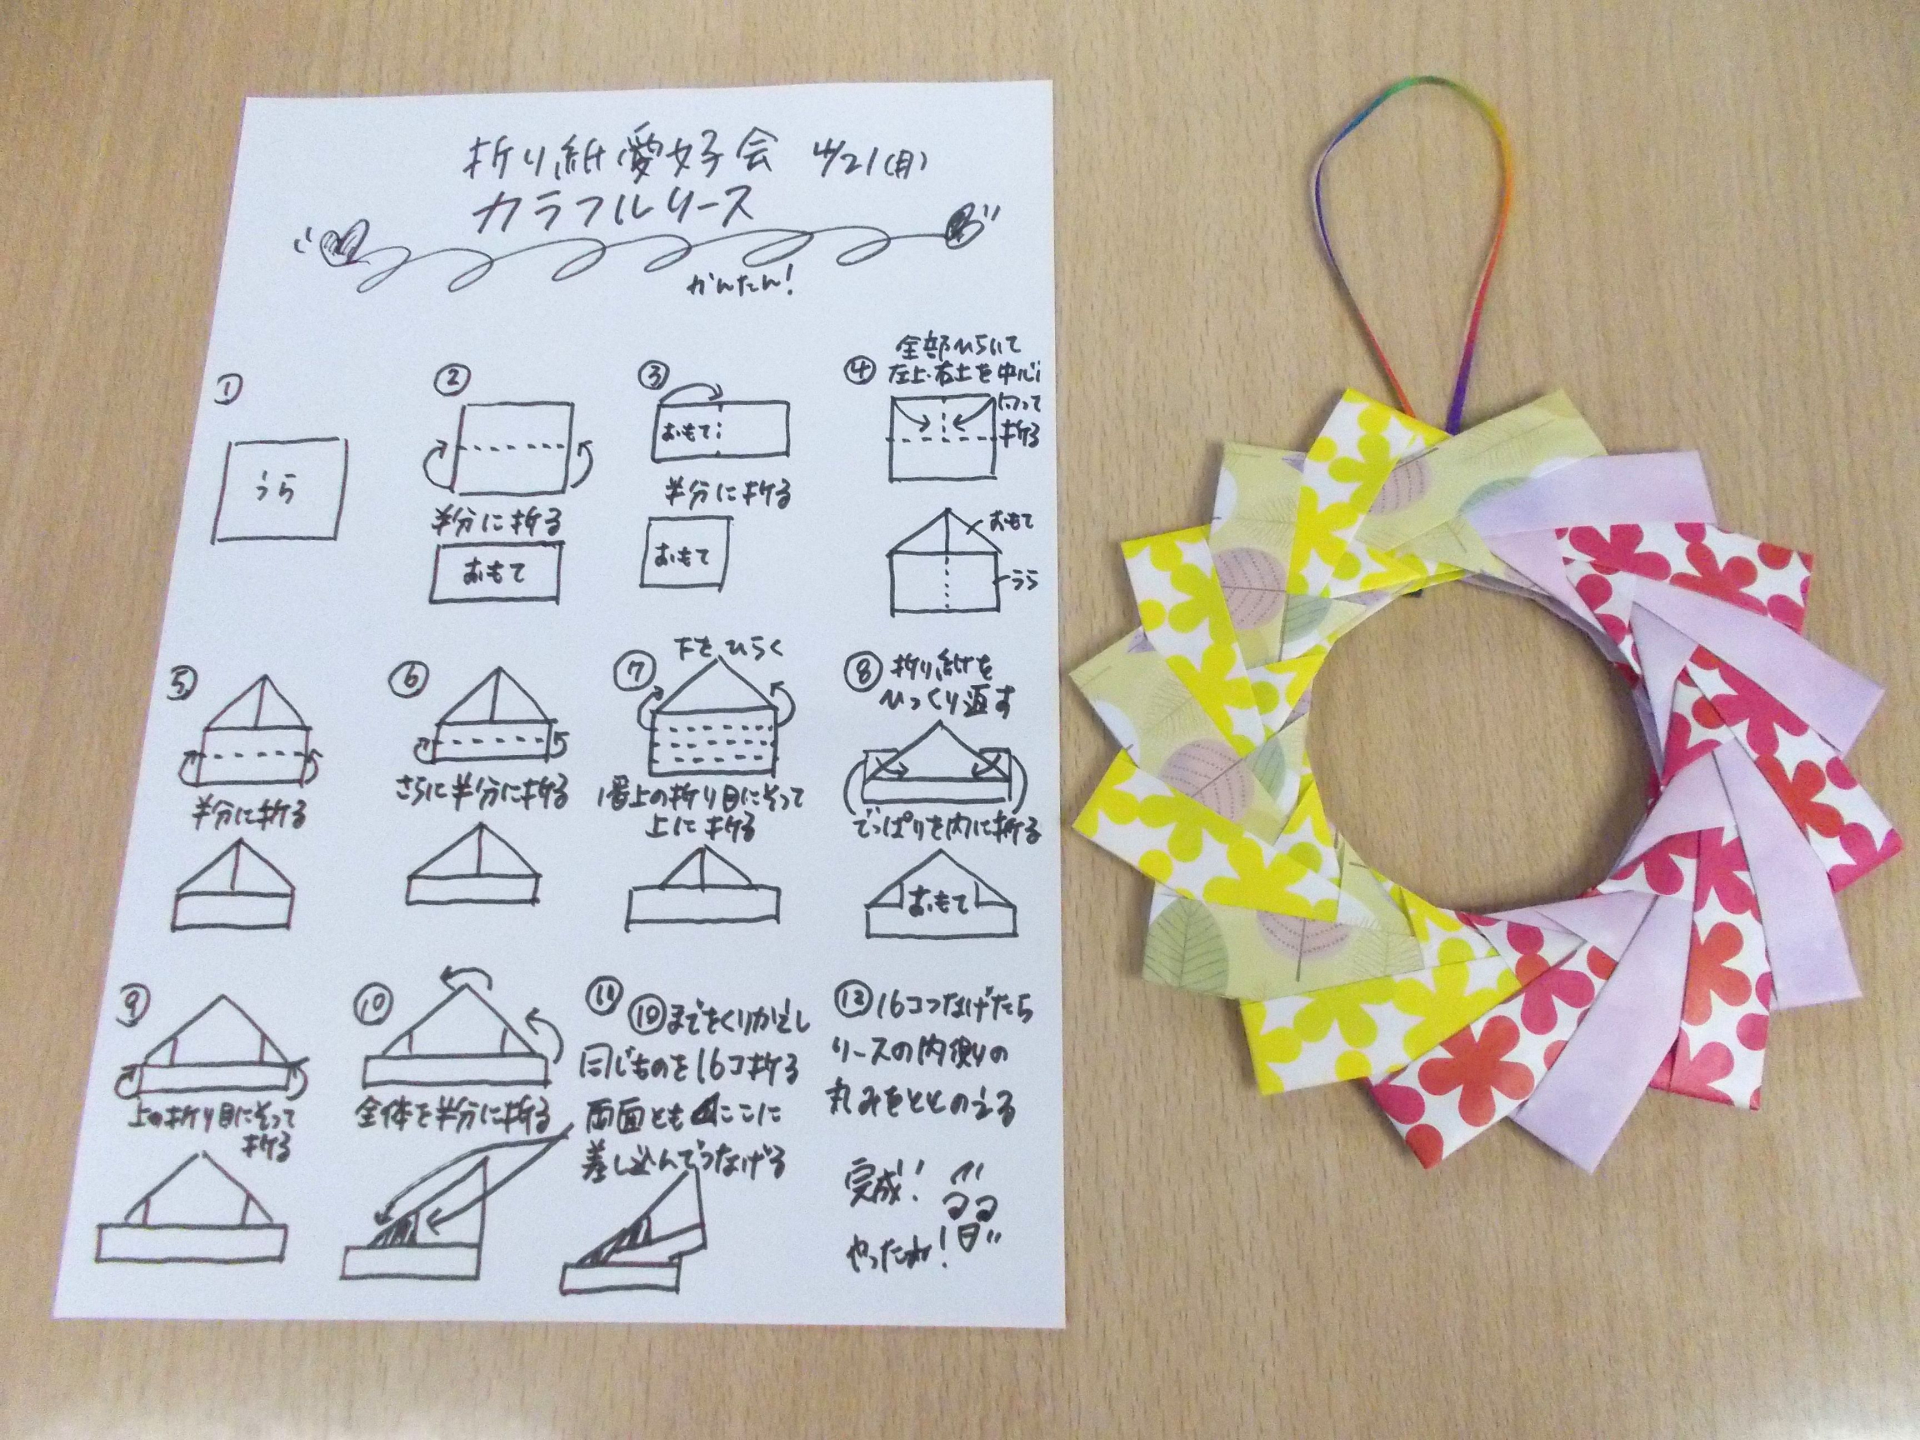 折り紙愛好会 4/21(月)
カラフルリース
かんたん!
①
うら
②
半分に折る
おもて
③
おもて
半分に折る
おもて
④
全部ひらいて
左上・右上を中心に
向って
折る
おもて
うら
⑤
半分に折る
⑥
さらに半分に折る
⑦
下をひらく
1番上の折り目にそって
上に折る
⑧ 折り紙を
ひっくり返す
でっぱりを内に折る
おもて
⑨
上の折り目にそって
折る
⑩
全体を半分に折る
⑪ ⑩までをくりかえし
同じものを16コ折る
両面ともここに
差し込んでつなげる
⑫ 16コつなげたら
リースの内側の
丸みをととのえる
完成!
やったね!